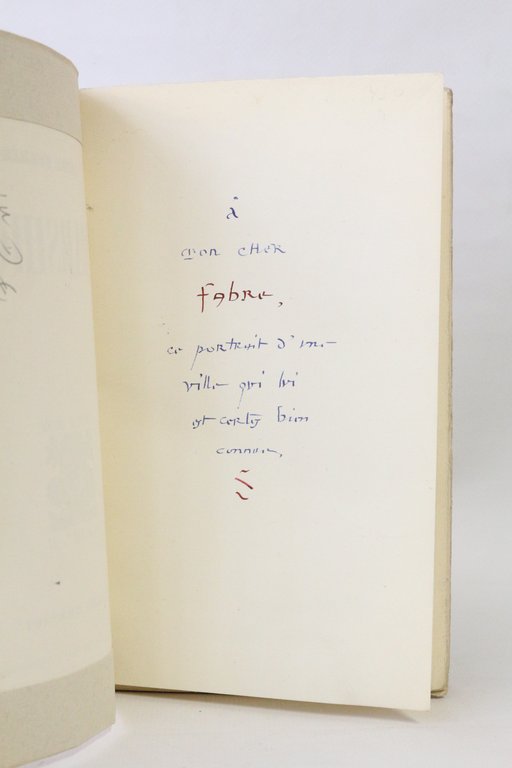 à
mon cher
Fabre,
ce portrait d'une
ville qui lui
est certes bien
connue,